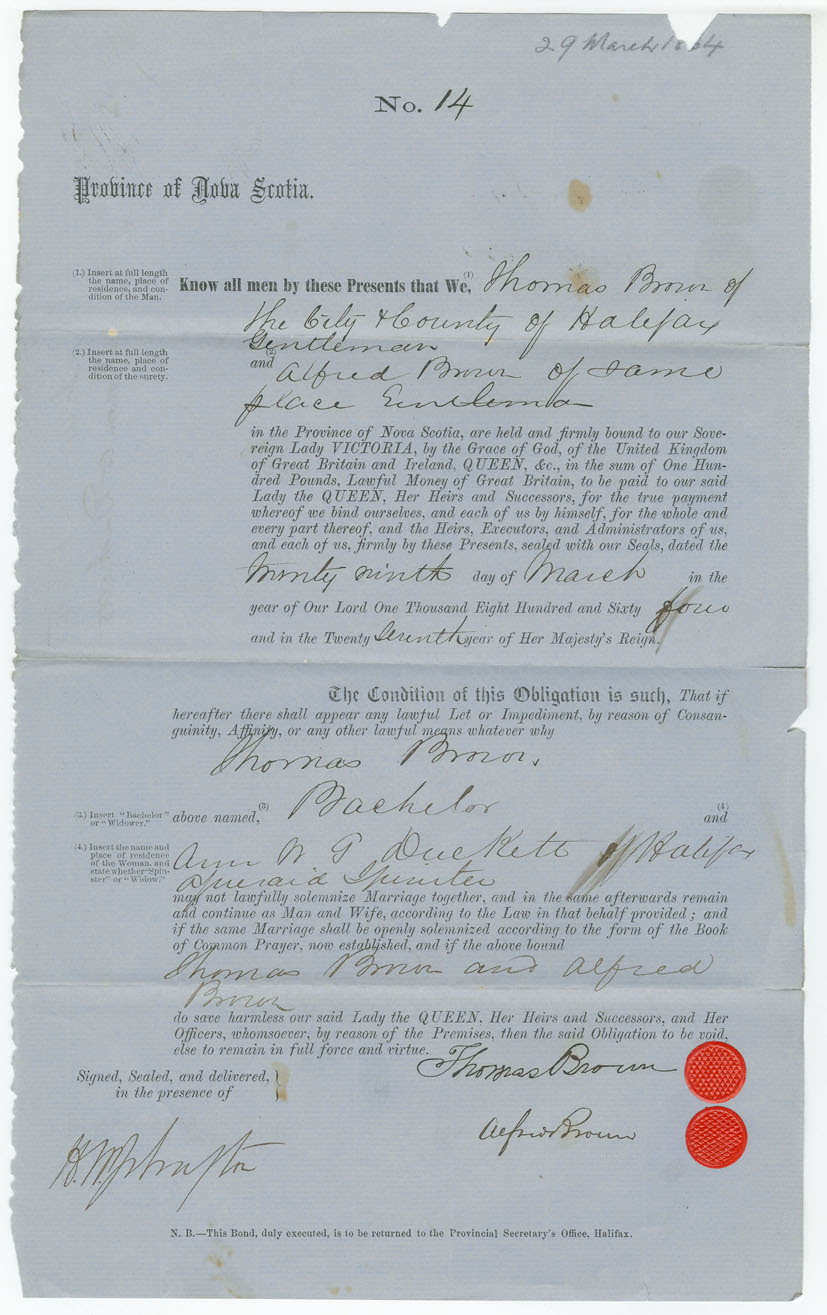 29 March 1864
No. 14
Province of Nova Scotia.
(1.) Insert at full length
the name, place of
residence, and con-
dition of the Man.
Know all men by these Presents that We, (1) Thomas Brown of
the City & County of Halifax
Gentleman
(2.) Insert at full length
the name, place of
residence and con-
dition of the surety.
and (2) Alfred Brown of same
place Gentleman
in the Province of Nova Scotia, are held and firmly bound to our Sove-
reign Lady VICTORIA, by the Grace of God, of the United Kingdom
of Great Britain and Ireland, QUEEN, &c., in the sum of One Hun-
dred Pounds, Lawful Money of Great Britain, to be paid to our said
Lady the QUEEN, Her Heirs and Successors, for the true payment
whereof we bind ourselves, and each of us by himself, for the whole and
every part thereof, and the Heirs, Executors, and Administrators of us,
and each of us, firmly by these Presents, sealed with our Seals, dated the
Twenty ninth day of March in the
year of Our Lord One Thousand Eight Hundred and Sixty four
and in the Twenty Seventh year of Her Majesty's Reign.
The Condition of this Obligation is such, That if
hereafter there shall appear any lawful Let or Impediment, by reason of Consan-
guinity, Affinity, or any other lawful means whatever why
Thomas Brown.
(3.) Insert "Bachelor"
or "Widower."
above named, (3) Bachelor (4) and
(4.) Insert the name and
place of residence
of the Woman, and
state whether "Spin-
ster" or "Widow."
Ann W Duckett of Halifax
aforesaid Spinster
may not lawfully solemnize Marriage together, and in the same afterwards remain
and continue as Man and Wife, according to the Law in that behalf provided; and
if the same Marriage shall be openly solemnized according to the form of the Book
of Common Prayer, now established, and if the above bound
Thomas Brown and Alfred
Brown
do save harmless our said Lady the QUEEN, Her Heirs and Successors, and Her
Officers, whomsoever, by reason of the Premises, then the said Obligation to be void,
else to remain in full force and virtue.
Thomas Brown
Signed, Sealed, and delivered,
in the presence of
Alfred Brown
N. B.—This Bond, duly executed, is to be returned to the Provincial Secretary's Office, Halifax.